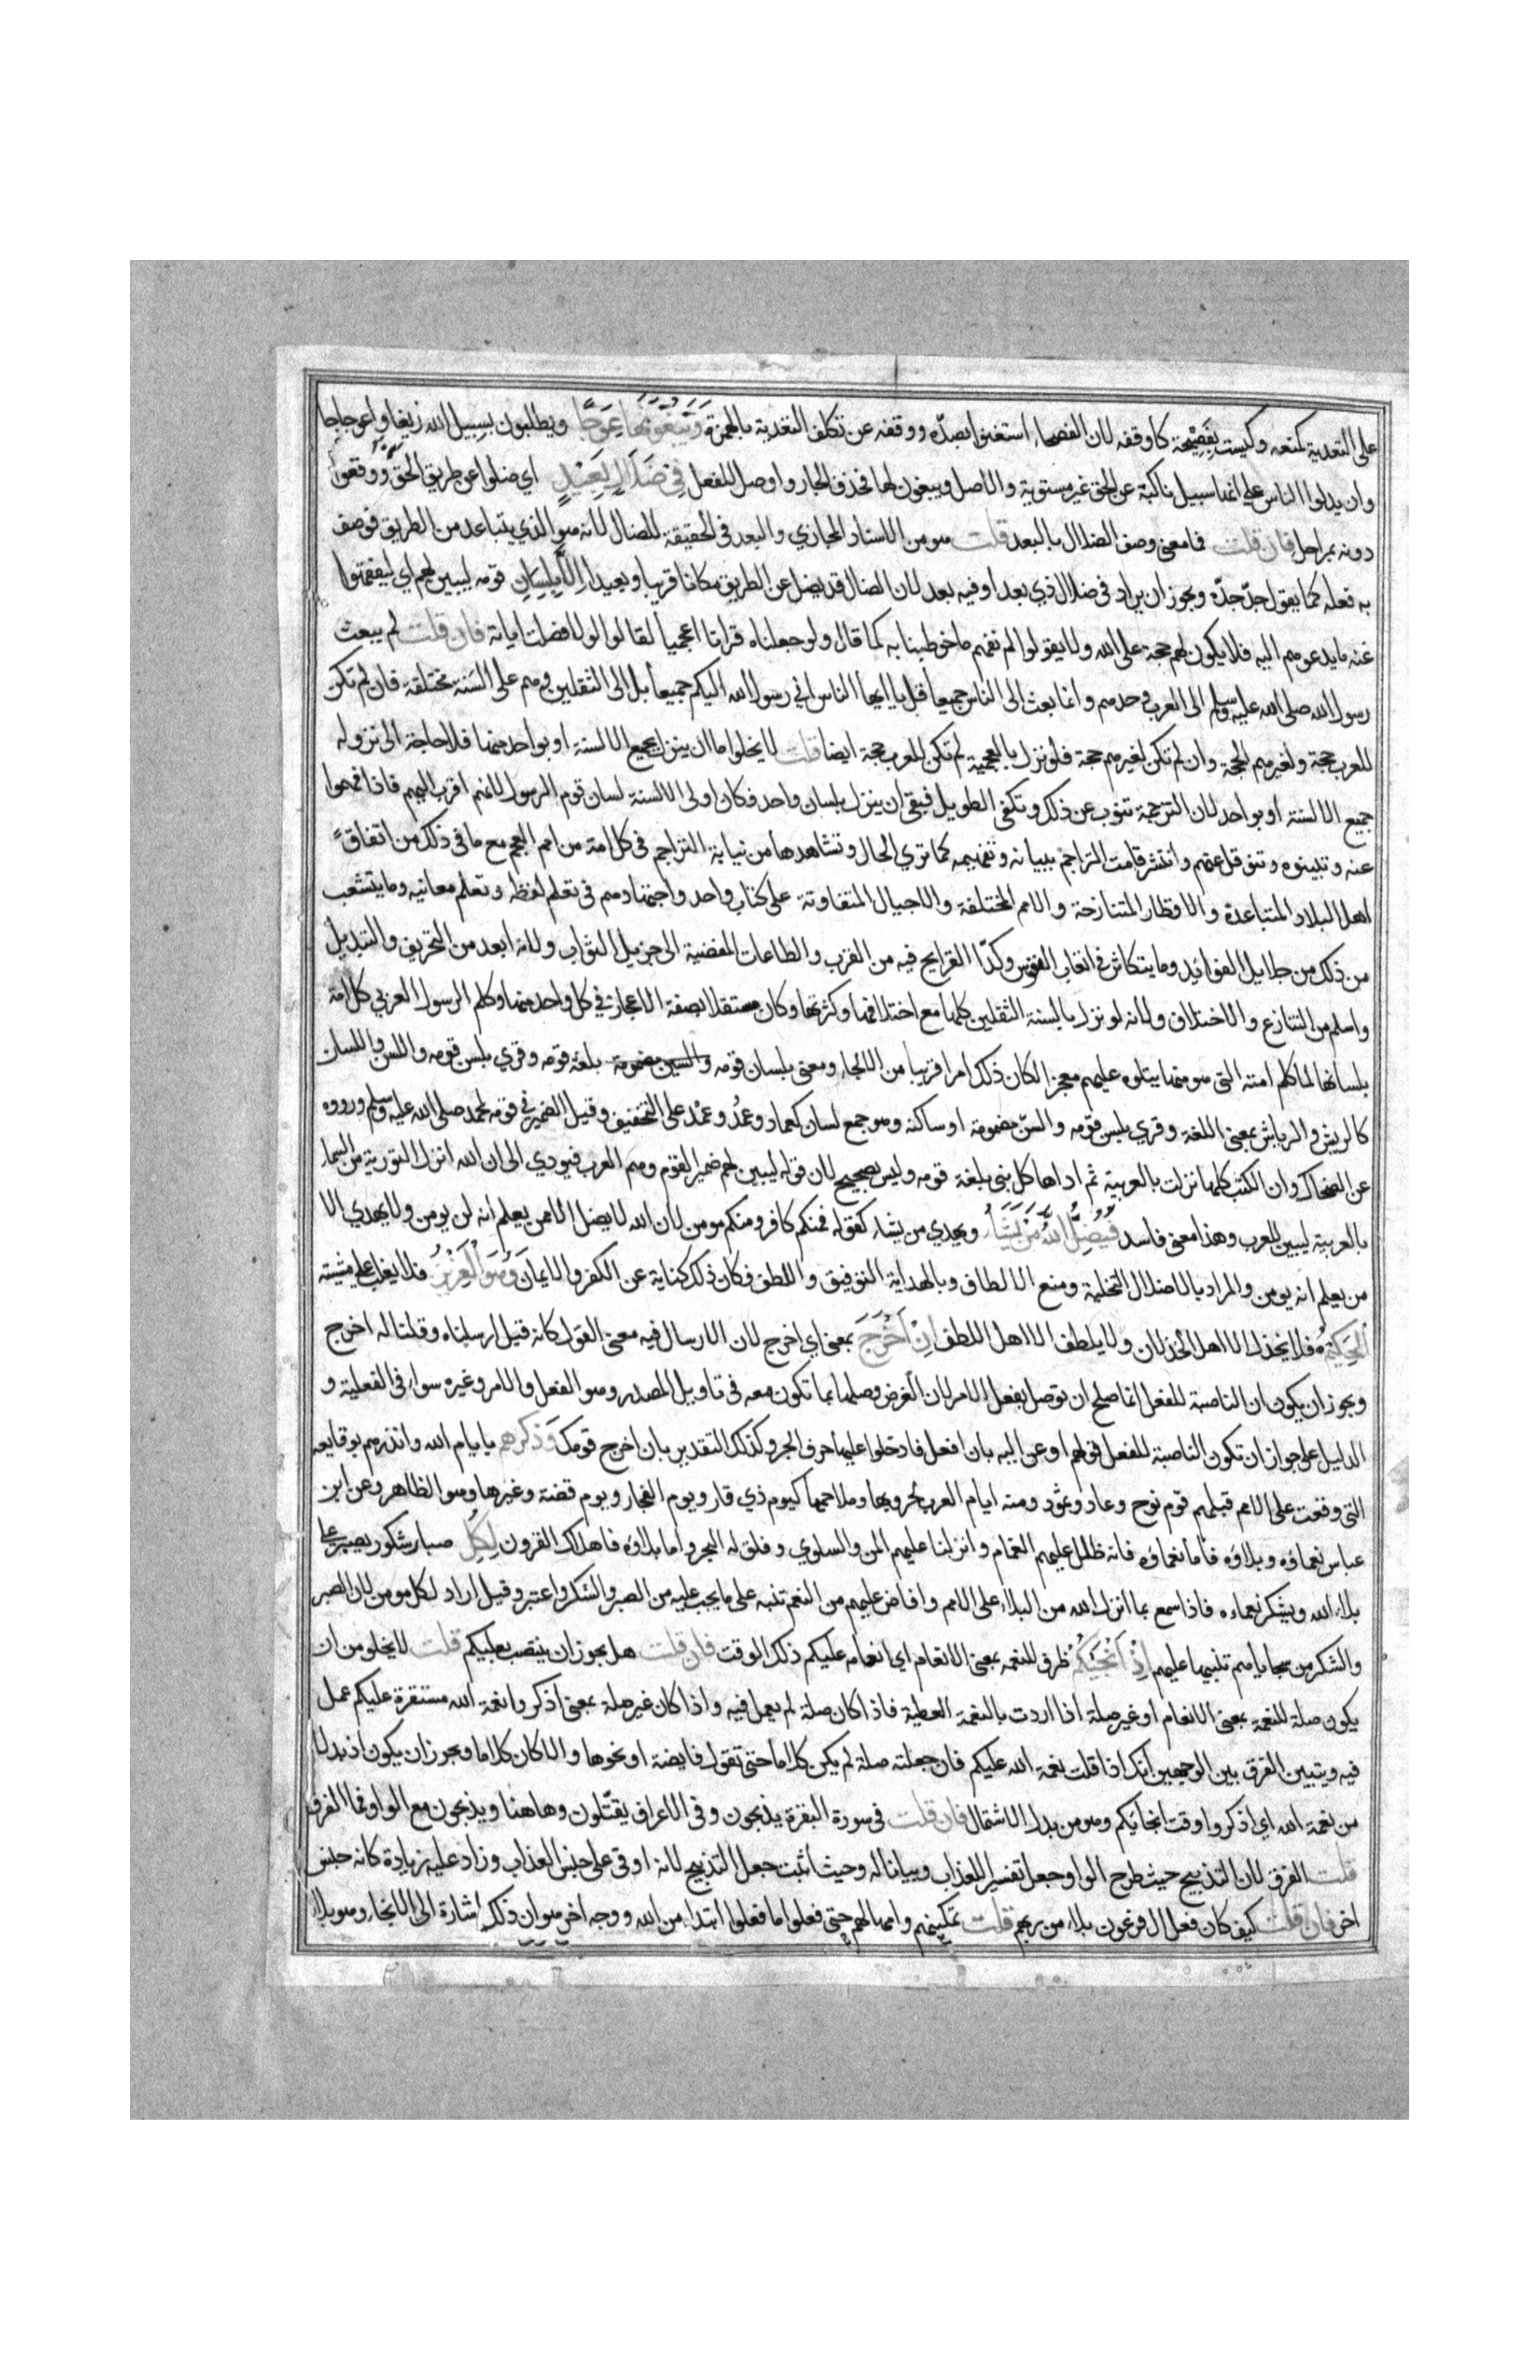 على التعدية كمنعه وليست بفصيحة كاوقفه لان الفصحاء استغنوا بصده ووقفه عن تكلف التعدية بالهمزة ويبغونها عوجا ويطلبون بسبيل الله زيغا واعوجاجا
وان يدلوا الناس على انها سبيل ناكبة عن الحق غير مستوية والاصل ويبغون لها فحذف الجار واوصل الفعل في ضلال بعيد اي ضلوا عن طريق الحق ووقعوا
دونه بمراحل فان قلت فما معنى وصف الضلال بالبعد قلت هو من الاسناد المجازي والبعد في الحقيقة للضال لانه هو الذي يتباعد من الطريق فوصف
به فعله كما يقول جد جده ويجوز ان يراد في ضلال ذي بعد او فيه بعد لان الضال قد يضل عن الطريق مكانا قريبا وبعيدا الا بلسان قومه ليبين لهم اي ليفقهوا
عنه ما يدعوهم اليه فلا يكون لهم حجة على الله ولا يقولوا لم نفهم ما خوطبنا به كما قال ولو جعلناه قرانا اعجميا لقالوا لولا فصلت اياته فان قلت لم يبعث
رسول الله صلى الله عليه وسلم الى العرب وحدهم وانما بعث الى الناس جميعا قل يا ايها الناس اني رسول الله اليكم جميعا بل الى الثقلين وهم على السنة مختلفة فان لم تكن
للعرب حجة ولغيرهم الحجة وان لم تكن لغيرهم حجة فلو نزل بالعجمية لم تكن للعرب حجة ايضا قلت لا يخلوا اما ان ينزل بجميع الالسنة او بواحد منها فلا حاجة الى نزوله
جميع الالسنة او بواحد لان الترجمة تنوب عن ذلك وتكفي الطويل فبقي ان ينزل بلسان واحد فكان اولى الالسنة لسان قوم الرسول لانهم اقرب اليهم فاذا فهموا
عنه وتبينوه وتنوقل عنهم وانتشر قامت التراجم ببيانه وتفهيمه كما ترى الحال وتشاهدها من نيابة التراجم في كل امة من امم العجم مع ما في ذلك من اتفاق
اهل البلاد المتباعدة والاقطار المتنازحة والامم المختلفة والاجيال المتفاوتة على كتاب واحد واجتهادهم في تعلم لفظه وتعلم معانيه وما يتشعب
من ذلك من جلايل الفوائد وما يتكاثر في اتعاب النفوس وكد القرايح فيه من القرب والطاعات المفضية الى جزيل الثواب ولانه ابعد من التحريف والتبديل
واسلم من التنازع والاختلاف ولانه لو نزل بالسنة الثقلين كلها مع اختلافها وكثرتها وكان مستقلا بصفة الاعجاز في كل واحد منها وكلم الرسول العربي كل امة
بلسانها كما كلم امته التي هو منها يتلوه عليهم معجزا لكان ذلك امرا قريبا من الالجاء ومعنى بلسان قومه والسين مضمومة بلغة قومه وقري بلسن قومه واللسن واللسان
كالريش والرياش بمعنى اللغة وقري بلسن قومه والسن مضمومة او ساكنة وهو جمع لسان كعماد وعمد وعمد على التخفيف وقيل الضمير في قومه لمحمد صلى الله عليه وسلم ورووه
عن الضحاك وان الكتب كلها نزلت بالعربية ثم اداها كل نبي بلغة قومه وليس بصحيح لان قوله ليبين لهم ضمير القوم وهم العرب فيودي الى ان الله انزل التورية من السماء
بالعربية ليبين للعرب وهذا معنى فاسد فيضل الله من يشاء ويهدي من يشاء كقوله فمنكم كافر ومنكم مومن لان الله لا يضل الا من يعلم انه لن يومن ولا يهدي الا
من يعلم انه يومن والمراد بالاضلال التخلية ومنع الالطاف وبالهداية التوفيق واللطف فكان ذلك كناية عن الكفر والايمان وهو العزيز فلا يغلب على مشيته
الحكيم فلا يخذل الا اهل الخذلان ولا يلطف الا اهل اللطف ان اخرج بمعنى اي اخرج لان الارسال فيه معنى القول كانه قيل ارسلناه وقلنا له اخرج
ويجوز ان يكون ان الناصبة للفعل انما صلح ان توصل بفعل الامر لان الغرض وصلها بما تكون معه في تاويل المصدر وهو الفعل والامر وغيره سواء في الفعلية و
الدليل على جواز ان تكون الناصبة للفعل قولهم اوعز اليه بان افعل فادخلوا عليها حرف الجر وكذلك التقدير بان اخرج قومك وذكرهم بايام الله وانذرهم بوقايعه
التي وقعت على الامم قبلهم قوم نوح وعاد وثمود ومنه ايام العرب لحروبها وملاحمها كيوم ذي قار ويوم الفجار ويوم قضة وغيرها وهو الظاهر وعن ابن
عباس نعماؤه وبلاؤه فاما نعماؤه فانه ظلل عليهم الغمام وانزلنا عليهم المن والسلوى وفلق له البحر واما بلاؤه فاهلاك القرون لكل صبار شكور يصبر على
بلاء الله ويشكر نعماءه فاذا سمع بما انزل الله من البلاء على الامم وافاض عليهم من النعم تنبه على ما يجب عليه من الصبر والشكر واعتبر وقيل اراد لكل مومن لان الصبر
والشكر من سجاياهم تنبيها عليهم اذ انجيكم ظرف للنعمة بمعنى الانعام اي انعامه عليكم ذلك الوقت فان قلت هل يجوز ان ينتصب بعليكم قلت لا يخلو من ان
يكون صلة للنعمة بمعنى الانعام او غير صلة اذا اردت بالنعمة العطية فاذا كان صلة لم يعمل فيه واذا كان غير صلة بمعنى اذكروا نعمة الله مستقرة عليكم عمل
فيه ويتبين الفرق بين الوجهين انك اذا قلت نعمة الله عليكم فان جعلته صلة لم يكن كلاما حتى تقول فايضة او نحوها والا كان كلاما ويجوز ان يكون اذ بدلا
من نعمة الله اي اذكروا وقت انجائكم وهو من بدل الاشتمال فان قلت في سورة البقرة يذبحون وفي الاعراف يقتلون وهاهنا ويذبحون مع الواو فما الفرق
قلت الفرق لان التذبيح حيث طرح الواو جعل تفسيرا للعذاب وبيانا له وحيث اثبت جعل التذبيح لانه اوفى على جنس العذاب وزاد عليه زيادة كانه جنس
اخر فان قلت كيف كان فعل ال فرعون بلاء من ربهم قلت تمكينهم وامهالهم حتى فعلوا ما فعلوا ابتداء من الله ووجه اخر هو ان ذلك اشارة الى الانجاء وهو بلاء